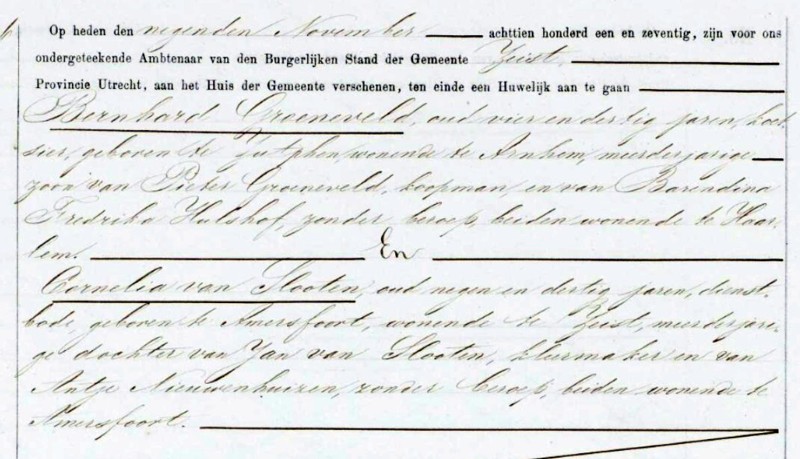 Op heden den negenden November achttien honderd een en zeventig, zijn voor ons
ondergeteekende Ambtenaar van den Burgerlijken Stand der Gemeente Zeist
Provincie Utrecht, aan het Huis der Gemeente verschenen, ten einde een Huwelijk aan te gaan
Bernhard Groeneveld, oud vier en dertig jaren, koet-
sier, geboren te Zutphen, wonende te Arnhem, meerderjarige
zoon van Pieter Groeneveld, koopman, en van Barendina
Fredrika Hulshof, zonder beroep, beiden wonende te Haar-
lem. En
Cornelia van Slooten, oud negen en dertig jaren, dienst-
bode, geboren te Amersfoort, wonende te Zeist, meerderjari-
ge dochter van Jan van Slooten, kleermaker en van
Antje Nieuwenhuizen, zonder beroep, beiden wonende te
Amersfoort.